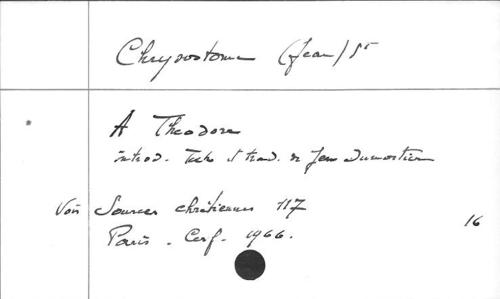 Chrysostome (Jean) St
A Théodore
introd. Texte et trad. de Jean Dumortier
Voir Sources chrétiennes 117
Paris. Cerf. 1966.
16